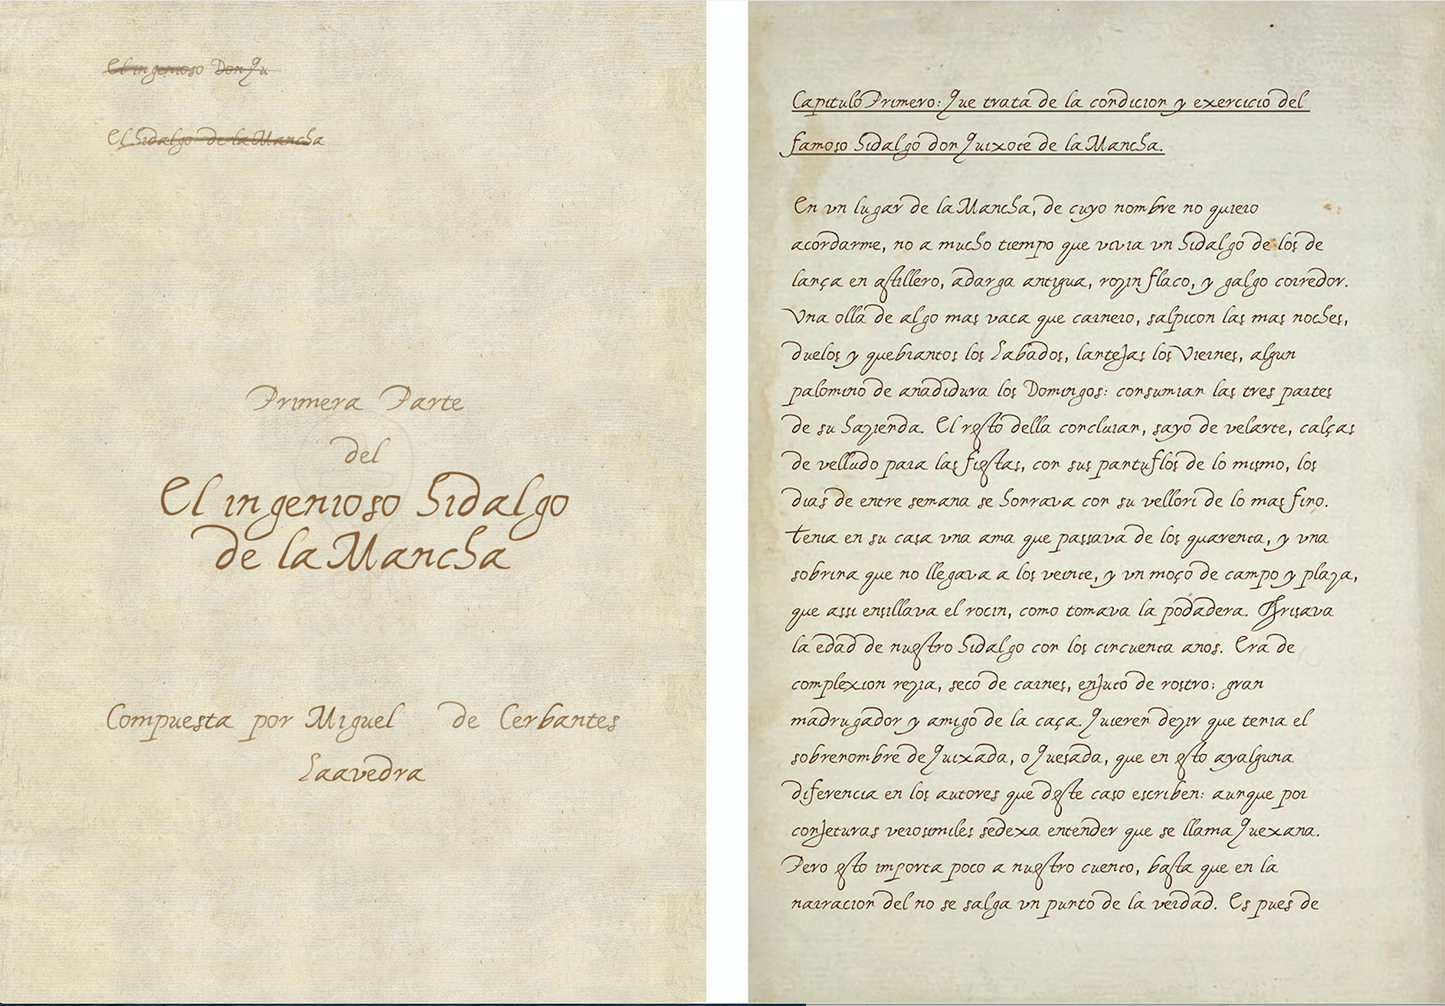 El ingenioso Don Qu
El Hidalgo de la Mancha
Primera Parte
del
El ingenioso Hidalgo
de la Mancha
Compuesta por Miguel de Cerbantes
Saavedra
Capitulo Primero: Que trata de la condicion y exercicio del
famoso hidalgo don Quixote de la Mancha.
En vn lugar de la Mancha, de cuyo nombre no quiero
acordarme, no a mucho tiempo que vivia vn hidalgo de los de
lança en astillero, adarga antigua, rozin flaco, y galgo corredor.
Vna olla de algo mas vaca que carnero, salpicon las mas noches,
duelos y quebrantos los Sabados, lantejas los Viernes, algun
palomino de anadidura los Domingos: consumian las tres partes
de su hazienda. El resto della concluian, sayo de velarte, calças
de velludo para las fiestas, con sus pantuflos de lo mismo, los
dias de entre semana se honrava con su vellori de lo mas fino.
Tenia en su casa vna ama que passava de los quarenta, y vna
sobrina que no llegava a los veinte, y vn moço de campo y plaza,
que assi ensillava el rocin, como tomava la podadera. Frisava
la edad de nuestro hidalgo con los cincuenta anos. Era de
complexion rezia, seco de carnes, enjuto de rostro: gran
madrugador y amigo de la caça. Quieren dezir que tenia el
sobrenombre de Quixada, o Quesada, que en esto ayalguna
diferencia en los autores que deste caso escriben: aunque por
conjeturas verosimiles sedexa entender que se llama Quexana.
Pero esto importa poco a nuestro cuento, basta que en la
narracion del no se salga vn punto de la verdad. Es pues de